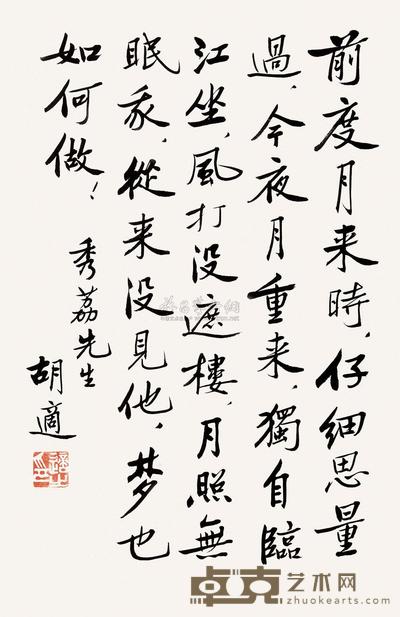 前度月来時，仔細思量
過，今夜月重来，獨自臨
江坐，風打没遮樓，月照無
眠我，從来没見他，梦也
如何做！
秀荔先生
胡適
適之
卓克艺术网
zhuokearts.com